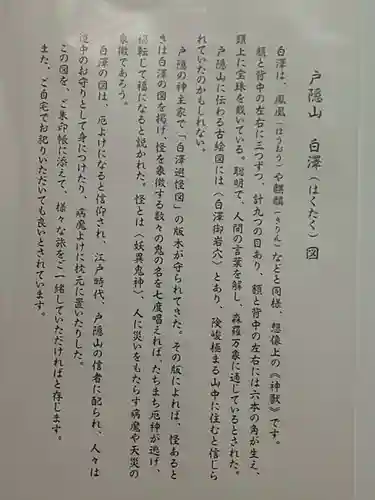 戸隠山　白澤（はくたく）図
白澤は、鳳凰（ほうおう）や麒麟（きりん）などと同様、想像上の《神獣》です。
額と背中の左右に三つずつ、計九つの目あり、額と背中の左右には六本の角が生え、
頭上に宝珠を戴いている。聡明で、人間の言葉を解し、森羅万象に通じているとされた。
戸隠山に伝わる古絵図には〈白澤御岩穴〉とあり、険峻極まる山中に住むと信じら
れていたのかもしれない。
戸隠の神主家で「白澤避怪図」の版木が守られてきた。その版によれば、怪あると
きは白澤の図を掲げ、怪を象徴する数々の鬼の名を七度唱えれば、たちまち厄神が逃げ、
転じて福になると説かれた。怪とは〈妖異鬼神〉、人に災いをもたらす病魔や天災の
象徴であろう。
白澤の図は、厄よけになると信仰され、江戸時代、戸隠山の信者に配られ、人々は
道中のお守りとして身につけたり、病魔よけに枕元に置いたりした。
この図を、ご朱印帳に添えて、様々な旅をご一緒していただければと存じます。
また、ご自宅でお祀りいただいても良いとされています。